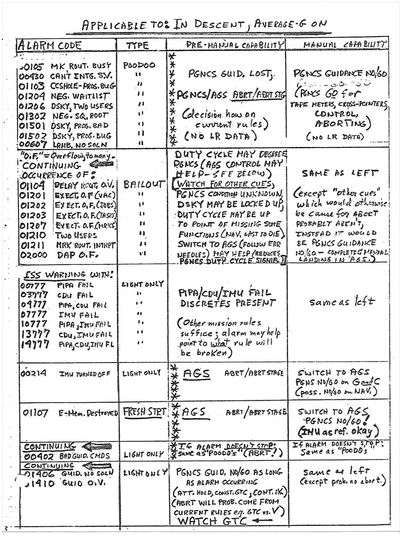 APPLICABLE TO: IN DESCENT, AVERAGE-G ON
ALARM CODE TYPE PRE-MANUAL CAPABILITY MANUAL CAPABILITY
00105 MK ROUT. BUSY POODOO
00430 CAN'T INTG. S.V. "
01103 CCSHOLE-PROG. BUG "
01204 NEG. WAITLIST "
01206 DSKY, TWO USERS "
01302 NEG. SQ. ROOT "
01501 DSKY, PROG. BAD "
01502 DSKY, PROG. BUG "
00607 LAMB. NO SOLN "
PGNCS GUID. LOST,
PGNCS/AGS ABRT/ABRT STG
(decision how on
current rules)
(NO LR DATA)
PGNCS GUIDANCE NO/GO
PGNCS GO FOR
TAPE METERS, CROSS-POINTERS,
CONTROL,
ABORTING)
(NO LR DATA)
"O.F." = Overflow, too many.
CONTINUING
OCCURRENCE OF:
01104 DELAY ROUT. O.V. BAILOUT
01201 EXECT. O.F (VAC) "
01202 EXECT. O.F. (JOBS) "
01203 EXECT. O.F. (TASKS) "
01207 EXECT. O.F. (MRKS) "
01210 TWO USERS "
01211 MRK ROUT. INTRPT "
02000 DAP O.F. "
DUTY CYCLE MAY DEGRADE
PGNCS (AGS CONTROL MAY
HELP - SEE BELOW)
(WATCH FOR OTHER CUES,
PGNCS CONDITION UNKNOWN,
DSKY MAY BE LOCKED UP,
DUTY CYCLE MAY BE UP
TO POINT OF MISSING SOME
FUNCTIONS (NAV. LAST TO DIE).
SWITCH TO AGS (FOLLOW ERR
NEEDLES) MAY HELP (REDUCES
PGNCS DUTY CYCLE SIGNIF.))
SAME AS LEFT
(except "other cues"
which would otherwise
be cause for ABORT
PROBABLY AREN'T,
INSTEAD IT WOULD
BE PGNCS GUIDANCE
NO/GO - COMPLETE MANUAL
LANDING IN AGS.)
ISS WARNING WITH:
00777 PIPA FAIL LIGHT ONLY
03777 CDU FAIL "
04777 PIPA, CDU FAIL "
07777 IMU FAIL "
10777 PIPA, IMU FAIL "
13777 CDU, IMU FAIL "
14777 PIPA, CDU, IMU FL "
PIPA/CDU/IMU FAIL
DISCRETES PRESENT
(Other mission rules
suffice; alarm may help
point to what rule will
be broken)
Same as left
00214 IMU TURNED OFF LIGHT ONLY AGS ABRT/ABRT STAGE
SWITCH TO AGS
PGNS NO/GO ON G and C
(poss. NO/GO on NAV.)
01107 E-Mem. Destroyed FRESH STRT AGS ABRT/ABRT STAGE
SWITCH TO AGS
PGNCS NO/GO
(IMU as ref. okay)
CONTINUING
00402 BAD GUID. CMDS LIGHT ONLY
IF ALARM DOESN'T STOP:
Same as "POODOO'S" (ABRT!)
If ALARM DOESN'T STOP:
Same as "POODO'S"
CONTINUING
01406 GUID. NO SOLN LIGHT ONLY
01410 GUID O.V.
PGNCS GUID. NO/GO AS LONG
AS ALARM OCCURING
(ATT. HOLD, CONST. GTC, CONT.
(ABRT WILL PROB. COME FROM
CURRENT RULES eg. GTC vs. V)
WATCH GTC
Same as left
(except prob. no abort.)